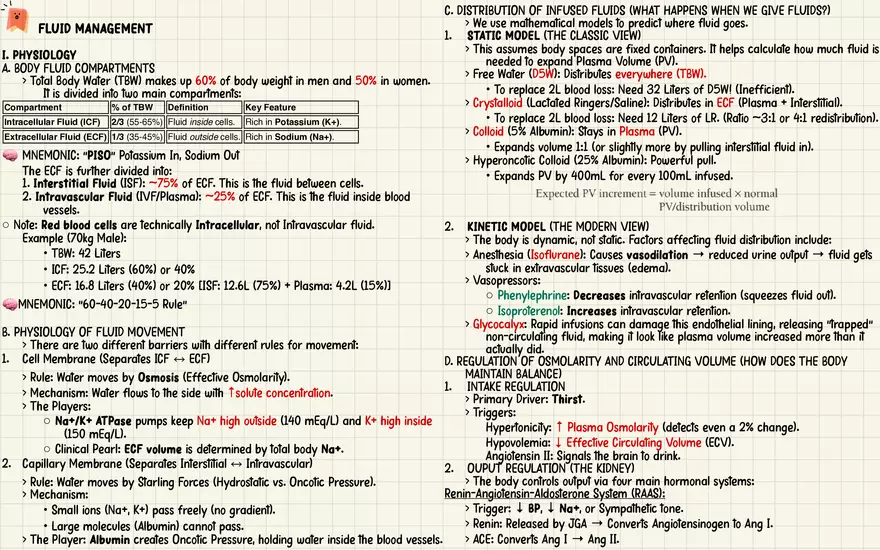 FLUID MANAGEMENT
I. PHYSIOLOGY
A. BODY FLUID COMPARTMENTS
> Total Body Water (TBW) makes up 60% of body weight in men and 50% in women.
It is divided into two main compartments:
Compartment % of TBW Definition Key Feature
Intracellular Fluid (ICF) 2/3 (55-65%) Fluid inside cells. Rich in Potassium (K+).
Extracellular Fluid (ECF) 1/3 (35-45%) Fluid outside cells. Rich in Sodium (Na+).
MNEMONIC: "PISO" Potassium In, Sodium Out
The ECF is further divided into:
1. Interstitial Fluid (ISF): ~75% of ECF. This is the fluid between cells.
2. Intravascular Fluid (IVF/Plasma): ~25% of ECF. This is the fluid inside blood
vessels.
○ Note: Red blood cells are technically Intracellular, not Intravascular fluid.
Example (70kg Male):
• TBW: 42 Liters
• ICF: 25.2 Liters (60%) or 40%
• ECF: 16.8 Liters (40%) or 20% [ISF: 12.6L (75%) + Plasma: 4.2L (15%)]
MNEMONIC: "60-40-20-15-5 Rule"
B. PHYSIOLOGY OF FLUID MOVEMENT
> There are two different barriers with different rules for movement:
1. Cell Membrane (Separates ICF ↔ ECF)
> Rule: Water moves by Osmosis (Effective Osmolarity).
> Mechanism: Water flows to the side with ↑solute concentration.
> The Players:
○ Na+/K+ ATPase pumps keep Na+ high outside (140 mEq/L) and K+ high inside
(150 mEq/L).
○ Clinical Pearl: ECF volume is determined by total body Na+.
2. Capillary Membrane (Separates Interstitial ↔ Intravascular)
> Rule: Water moves by Starling Forces (Hydrostatic vs. Oncotic Pressure).
> Mechanism:
• Small ions (Na+, K+) pass freely (no gradient).
• Large molecules (Albumin) cannot pass.
> The Player: Albumin creates Oncotic Pressure, holding water inside the blood vessels.
C. DISTRIBUTION OF INFUSED FLUIDS (WHAT HAPPENS WHEN WE GIVE FLUIDS?)
> We use mathematical models to predict where fluid goes.
1. STATIC MODEL (THE CLASSIC VIEW)
> This assumes body spaces are fixed containers. It helps calculate how much fluid is
needed to expand Plasma Volume (PV).
> Free Water (D5W): Distributes everywhere (TBW).
• To replace 2L blood loss: Need 32 Liters of D5W! (Inefficient).
> Crystalloid (Lactated Ringers/Saline): Distributes in ECF (Plasma + Interstitial).
• To replace 2L blood loss: Need 12 Liters of LR. (Ratio ~3:1 or 4:1 redistribution).
> Colloid (5% Albumin): Stays in Plasma (PV).
• Expands volume 1:1 (or slightly more by pulling interstitial fluid in).
> Hyperoncotic Colloid (25% Albumin): Powerful pull.
• Expands PV by 400mL for every 100mL infused.
Expected PV increment = volume infused × normal
PV/distribution volume
2. KINETIC MODEL (THE MODERN VIEW)
> The body is dynamic, not static. Factors affecting fluid distribution include:
> Anesthesia (Isoflurane): Causes vasodilation → reduced urine output → fluid gets
stuck in extravascular tissues (edema).
> Vasopressors:
○ Phenylephrine: Decreases intravascular retention (squeezes fluid out).
○ Isoproterenol: Increases intravascular retention.
> Glycocalyx: Rapid infusions can damage this endothelial lining, releasing "trapped"
non-circulating fluid, making it look like plasma volume increased more than it
actually did.
D. REGULATION OF OSMOLARITY AND CIRCULATING VOLUME (HOW DOES THE BODY
MAINTAIN BALANCE)
1. INTAKE REGULATION
> Primary Driver: Thirst.
> Triggers:
Hypertonicity: ↑ Plasma Osmolarity (detects even a 2% change).
Hypovolemia: ↓ Effective Circulating Volume (ECV).
Angiotensin II: Signals the brain to drink.
2. OUPUT REGULATION (THE KIDNEY)
> The body controls output via four main hormonal systems:
Renin-Angiotensin-Aldosterone System (RAAS):
> Trigger: ↓ BP, ↓ Na+, or Sympathetic tone.
> Renin: Released by JGA → Converts Angiotensinogen to Ang I.
> ACE: Converts Ang I → Ang II.